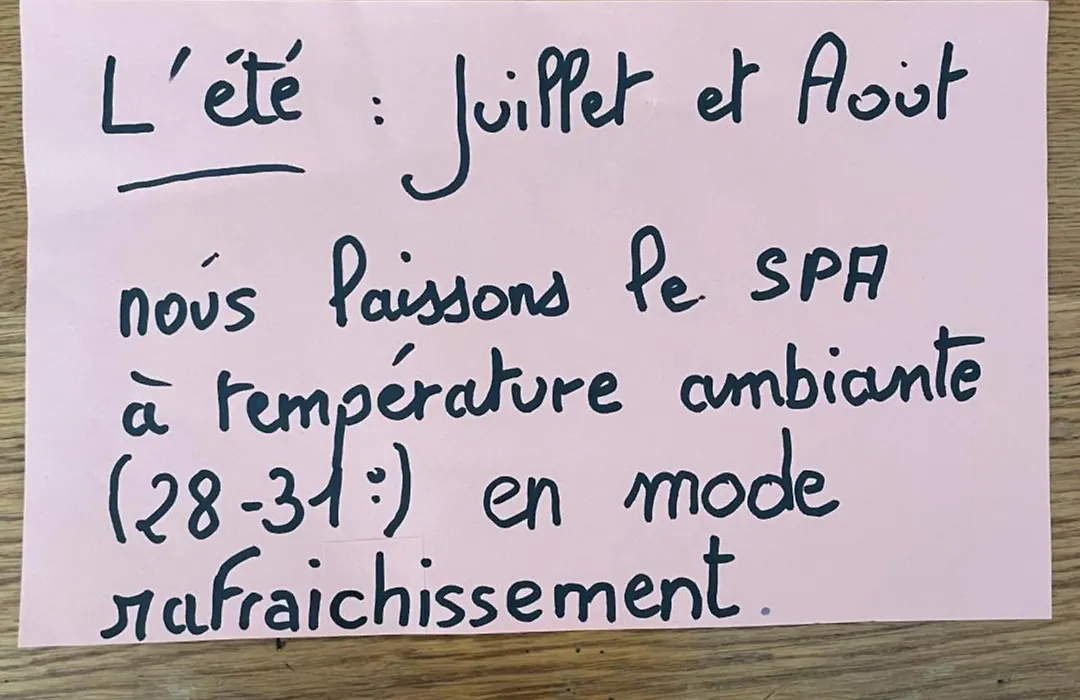 L'été : Juillet et Août
noús laissons le SPA
à température ambiante
(28-31°) en mode
rafraichissement.